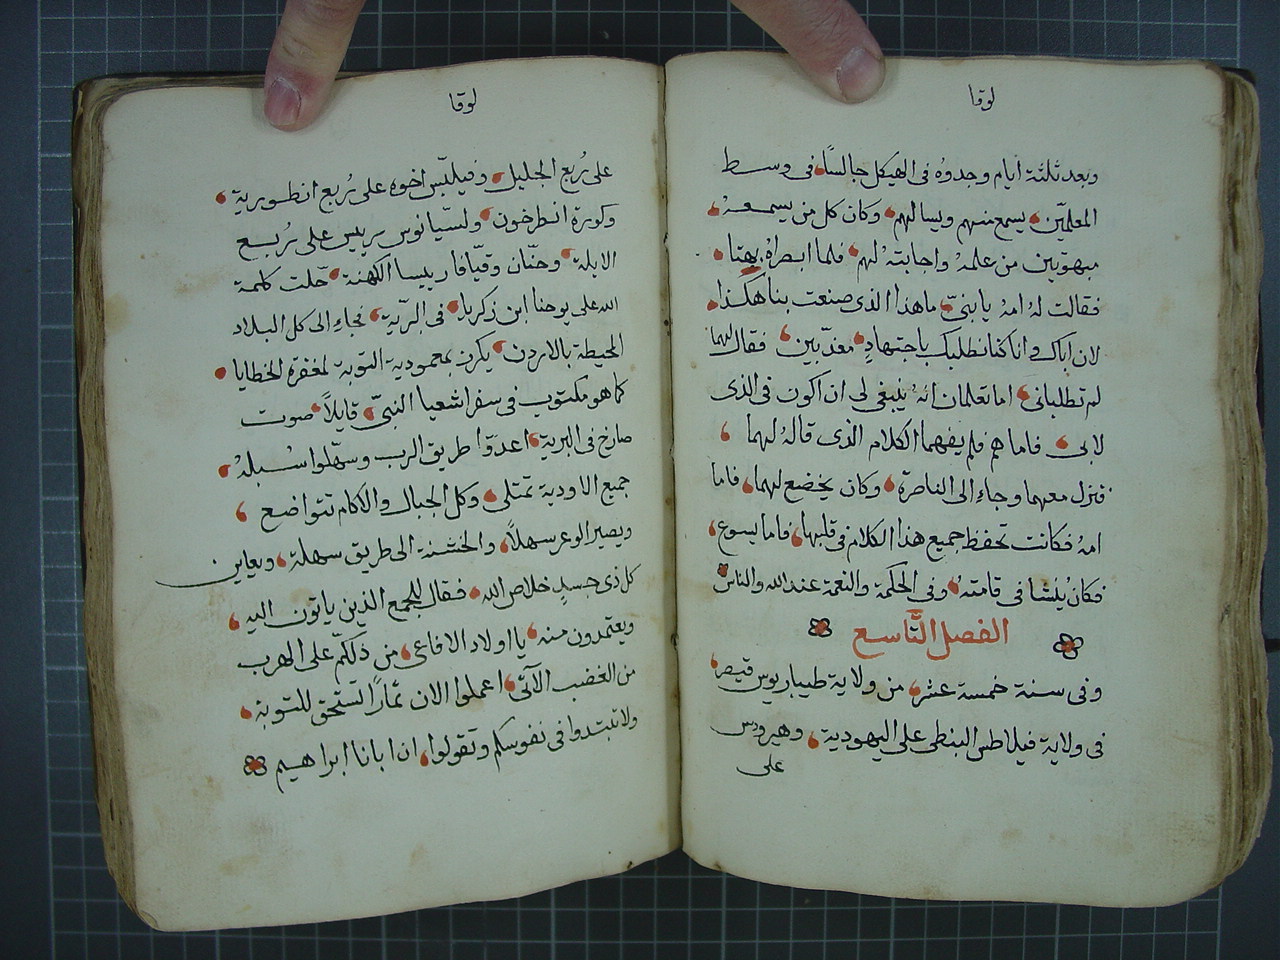 لوقا
وبعد ثلثة أيام وجدوهُ فى الهيكل جالسًا فى وسط
المعلمّين يسمع منهم ويسالهم وكان كل من يسمعهُ
مبهوتين من علمهُ واجابتهُ لهم فلما ابصراهُ بهتا
فقالت لهُ امهُ يابنىّ ماهذا الذى صنعت بنا هكذا
لان اباك وانا كنا نطلبك باجتهادٍ معذّبين فقال لهما
لم تطلبانى اما تعلمان انهُ ينبغى لى ان اكون فى الذى
لابى فاما هم فلم يفهما الكلام الذى قالهُ لهما
فنزل معهما وجاء الى الناصرة وكان يخضع لهما فاما
امهُ فكانت تحفظ جميع هذا الكلام فى قلبها فاما يسوع
فكان يُنشا فى قامتهُ وفى الحكمة والنعمة عند الله والناس
الفصل التّاسع
وفى سنة خمسة عشر من ولاية طيباريوس قيصر
فى ولاية فيلاطس البنطى على اليهودية وهيرودس
على
لوقا
على رُبع الجليل وفيلبّس اخوه على رُبع انطورية
وكورة انطرخون ولسّيانوس ريس على رُبع
الابلة وحنّان وقيّافا رييسا الكهنة حَلت كلمة
الله على يوحنا ابن زكريا فى البرّية فجاء الى كل البلاد
المحيطة بالاردن يكرز بمعمودية التوبة لمغفرة الخطايا
كما هو مكتوب فى سفر اشعيا النبىّ قايلاً صوت
صارخ فى البرية اعدّوا طريق الرب وسهّلوا سُبلهُ
جميع الاودية تمتلى وكل الجبال والاكام تتواضع
ويصير الوعر سهلاً والخشنة الى طريق سهلة ويعاين
كل ذى جسدٍ خلاص الله فقال للجمع الذين ياتون اليه
ويعتمدون منه يا اولاد الافاعى من دَلكّم على الهرب
من الغضب الآتى اعملوا الان ثمارًا تستحق للتوبة
ولا تبتدوا فى نفوسكم وتقولوا ان ابانا ابراهيم